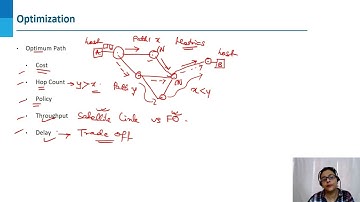 Optimization
host
Path 1 x
Metrics
A
N
host
B
• Optimum Path
• Cost
• Hop Count → y > x.
Path y
M
x < y
• Policy
• Throughput Satellite Link vs FO.
• Delay → Trade off